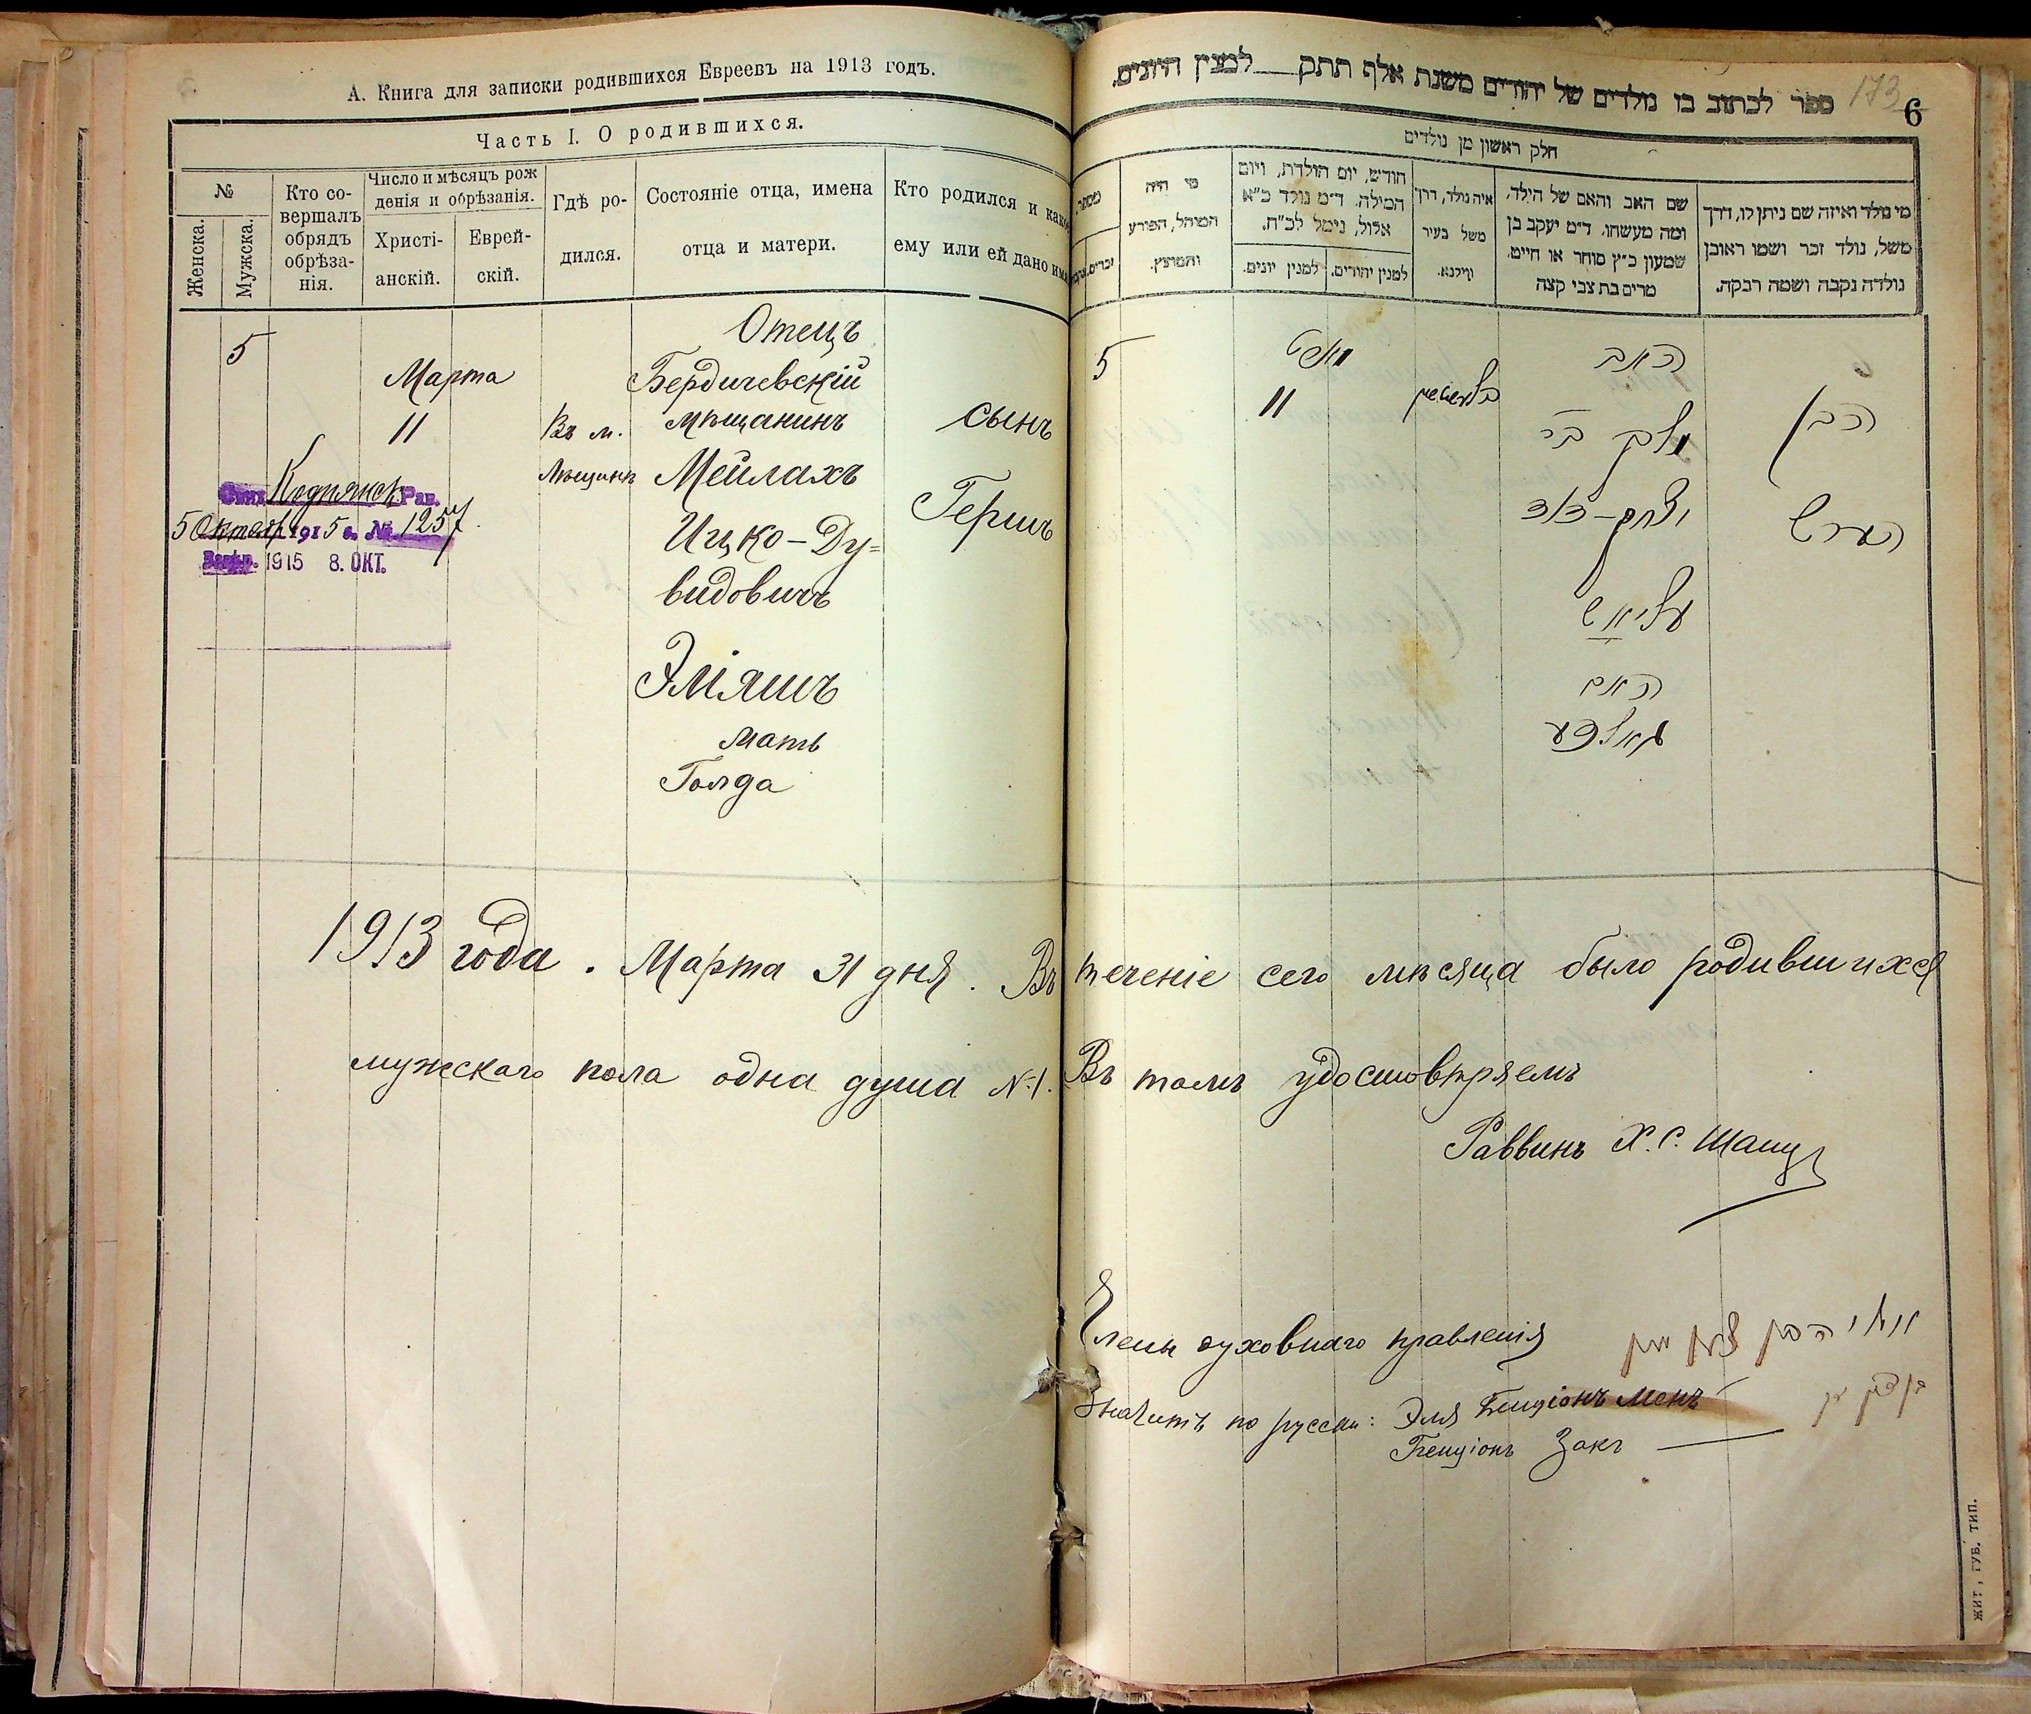 А. Книга для записки родившихся Евреевъ на 1913 годъ.
Часть I. О родившихся.
№
Женска.
Мужска.
Кто со-
вершалъ
обрядъ
обрѣза-
нія.
Число и мѣсяцъ рож
денія и обрѣзанія.
Христі-
анскій.
Еврей-
скій.
Гдѣ ро-
дился.
Состояніе отца, имена
отца и матери.
Кто родился и како
ему или ей дано имя
5
Марта
11
Въ м.
Отецъ
Бердичевскій
мѣщанинъ
Мейлахъ
Ицко-Ду=
видовичъ
Эліяшъ
мать
Голда
сынъ
Гершъ
Рав.
5 Октября 1915 г. № 1257.
1915 8. ОКТ.
ספר לכתוב בו נולדים של יהודים משנת אלף תתק למנין היונים.
173
6
חלק ראשון מן נולדים
מי היה
המוהל, הפורע
והמוצץ.
חודש, יום הולדת, ויום
המילה. ד״מ נולד כ״א
אלול, נימל לכ״ח.
למנין יהודים.
למנין יונים.
איה נולד, דרך
משל בעיר
ווילנא.
שם האב והאם של הילד,
ומה מעשהו. ד״מ יעקב בן
שמעון כ״ץ סוחר או חייט.
מרים בת צבי קצה
מי נולד ואיזה שם ניתן לו, דרך
משל, נולד זכר ושמו ראובן
נולדה נקבה ושמה רבקה.
5
11
האב
מלך בר
יצחק-דוד
עליאש
האם
גאלדע
הבן
הערש
1913 года. Марта 31 дня. Въ теченіе сего мѣсяца было родившихся
мужскаго пола одна душа №1. Въ томъ удостовѣряемъ
Раввинъ Х. С.
Члены духовнаго правленія
Значитъ по русски: Эля Бенціонъ Менъ
Бенціонъ Закъ
ЖИТ. ГУБ. ТИП.